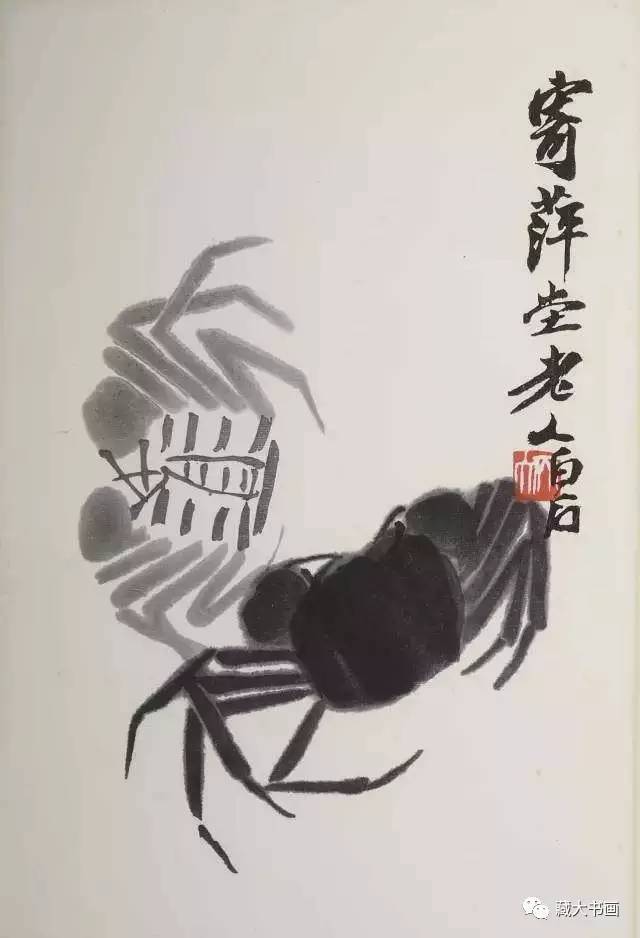 寄萍堂老人白石
藏大书画